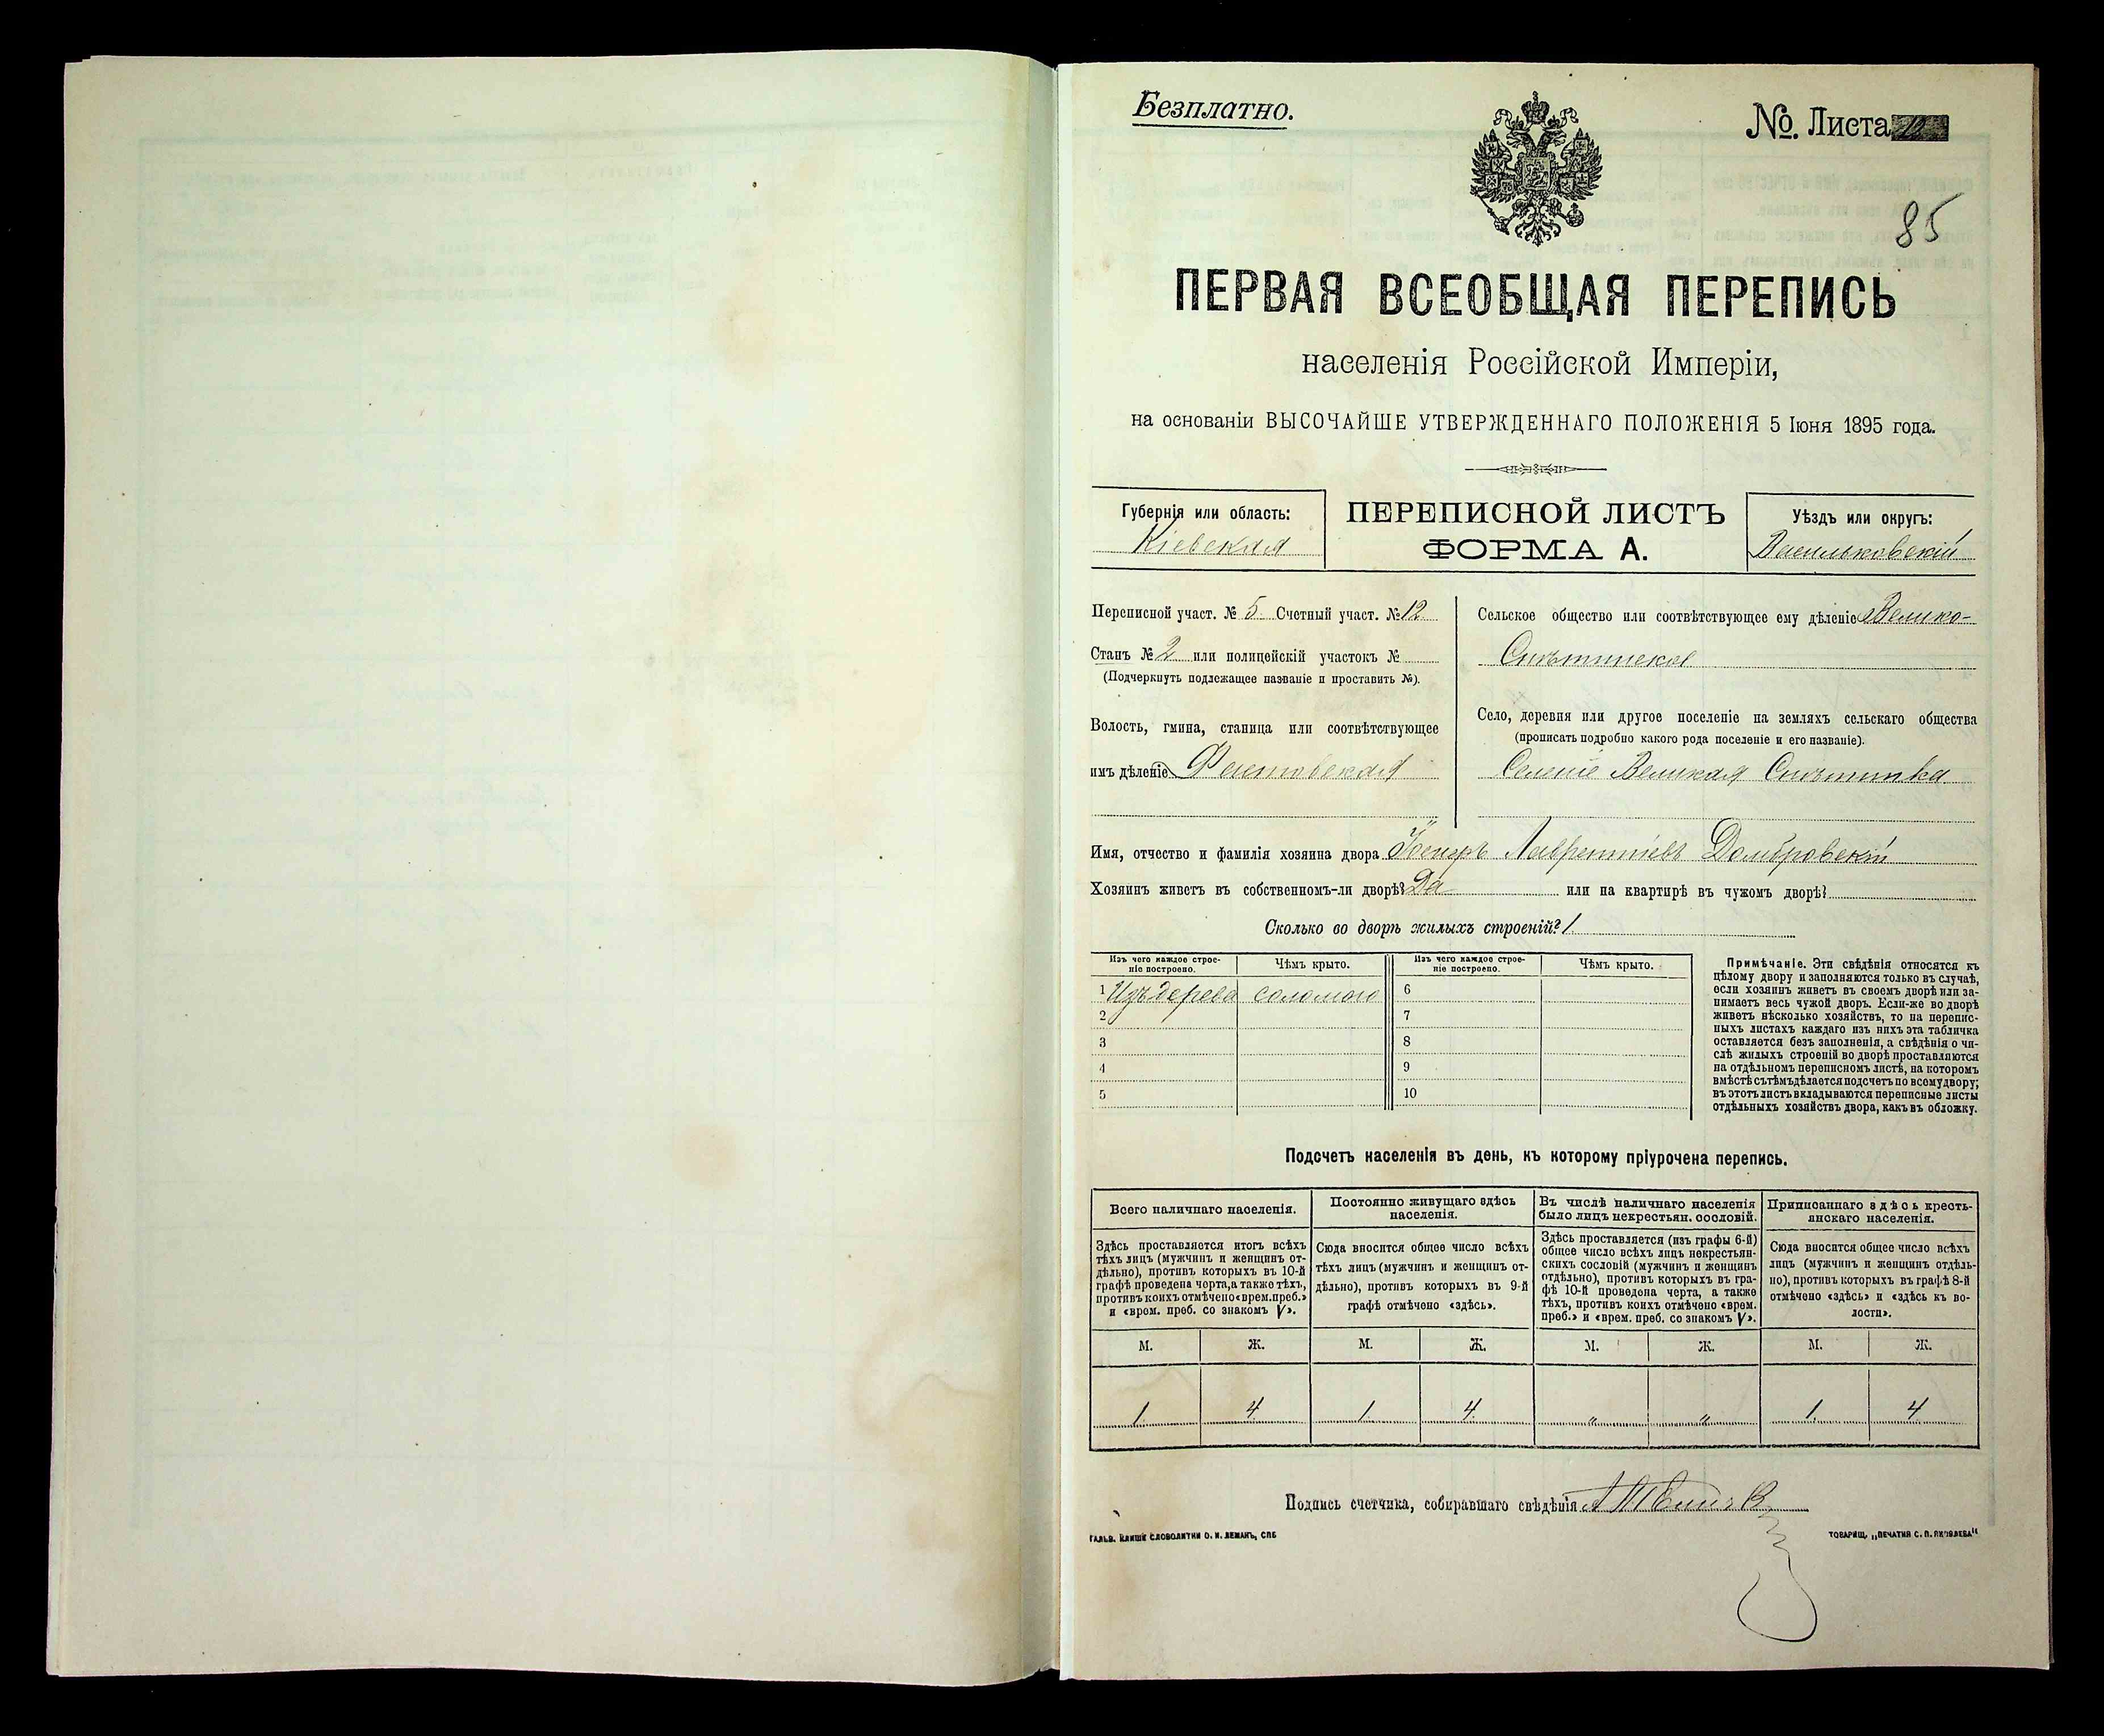 Безплатно.
№. Листа
85
ПЕРВАЯ ВСЕОБЩАЯ ПЕРЕПИСЬ
населенія Россійской Имперіи,
на основаніи ВЫСОЧАЙШЕ УТВЕРЖДЕННАГО ПОЛОЖЕНІЯ 5 Іюня 1895 года.
Губернія или область:
Кіевская
ПЕРЕПИСНОЙ ЛИСТЪ
ФОРМА А.
Уѣздъ или округъ:
Васильковскій
Переписной участ. № 5 Счетный участ. № 12
Станъ № 2 или полицейскій участокъ №
(Подчеркнуть подлежащее названіе и проставить №).
Волость, гмина, станица или соотвѣтствующее
имъ дѣленіе Фастовская
Сельское общество или соотвѣтствующее ему дѣленіе Велико-
Снѣтинское
Село, деревня или другое поселеніе на земляхъ сельскаго общества
(прописать подробно какого рода поселеніе и его названіе).
Селеніе Великая Снѣтинка
Имя, отчество и фамилія хозяина двора Лаврентіевъ Домбровскій
Хозяинъ живетъ въ собственномъ-ли дворѣ? Да или на квартирѣ въ чужомъ дворѣ?
Сколько во дворѣ жилыхъ строеній? 1
Изъ чего каждое строе-
ніе построено.
Чѣмъ крыто.
Изъ чего каждое строе-
ніе построено.
Чѣмъ крыто.
1 Изъ дерева соломою 6
2 7
3 8
4 9
5 10
Примѣчаніе. Эти свѣдѣнія относятся къ
цѣлому двору и заполняются только въ случаѣ,
если хозяинъ живетъ въ своемъ дворѣ или за-
нимаетъ весь чужой дворъ. Если-же во дворѣ
живетъ нѣсколько хозяйствъ, то на перепис-
ныхъ листахъ каждаго изъ нихъ эта табличка
оставляется безъ заполненія, а свѣдѣнія о чи-
слѣ жилыхъ строеній во дворѣ проставляются
на отдѣльномъ переписномъ листѣ, на которомъ
вмѣстѣ съ тѣмъ дѣлается подсчетъ по всему двору;
въ этотъ листъ вкладываются переписные листы
отдѣльныхъ хозяйствъ двора, какъ въ обложку.
Подсчетъ населенія въ день, къ которому пріурочена перепись.
Всего наличнаго населенія.
Здѣсь проставляется итогъ всѣхъ
тѣхъ лицъ (мужчинъ и женщинъ от-
дѣльно), противъ которыхъ въ 10-й
графѣ проведена черта, а также тѣхъ,
противъ коихъ отмѣчено «врем. преб.»
и «врем. преб. со знакомъ V».
Постоянно живущаго здѣсь
населенія.
Сюда вносится общее число всѣхъ
тѣхъ лицъ (мужчинъ и женщинъ от-
дѣльно), противъ которыхъ въ 9-й
графѣ отмѣчено «здѣсь».
Въ числѣ наличнаго населенія
было лицъ некрестьян. сословій.
Здѣсь проставляется (изъ графы 6-й)
общее число всѣхъ лицъ некрестьян-
скихъ сословій (мужчинъ и женщинъ
отдѣльно), противъ которыхъ въ гра-
фѣ 10-й проведена черта, а также
тѣхъ, противъ коихъ отмѣчено «врем.
преб.» и «врем. преб. со знакомъ V».
Приписаннаго здѣсь кресть-
янскаго населенія.
Сюда вносится общее число всѣхъ
лицъ (мужчинъ и женщинъ отдѣль-
но), противъ которыхъ въ графѣ 8-й
отмѣчено «здѣсь» и «здѣсь къ во-
лости».
М. Ж. М. Ж. М. Ж. М. Ж.
1 4 1 4 " " 1 4
Подпись счетчика, собиравшаго свѣдѣнія
ГАЛЬВ. КЛИШЕ СЛОВОЛИТНИ О. И. ЛЕМАНЪ, СПБ
ТОВАРИЩ. „ПЕЧАТНЯ С. П. ЯКОВЛЕВА"